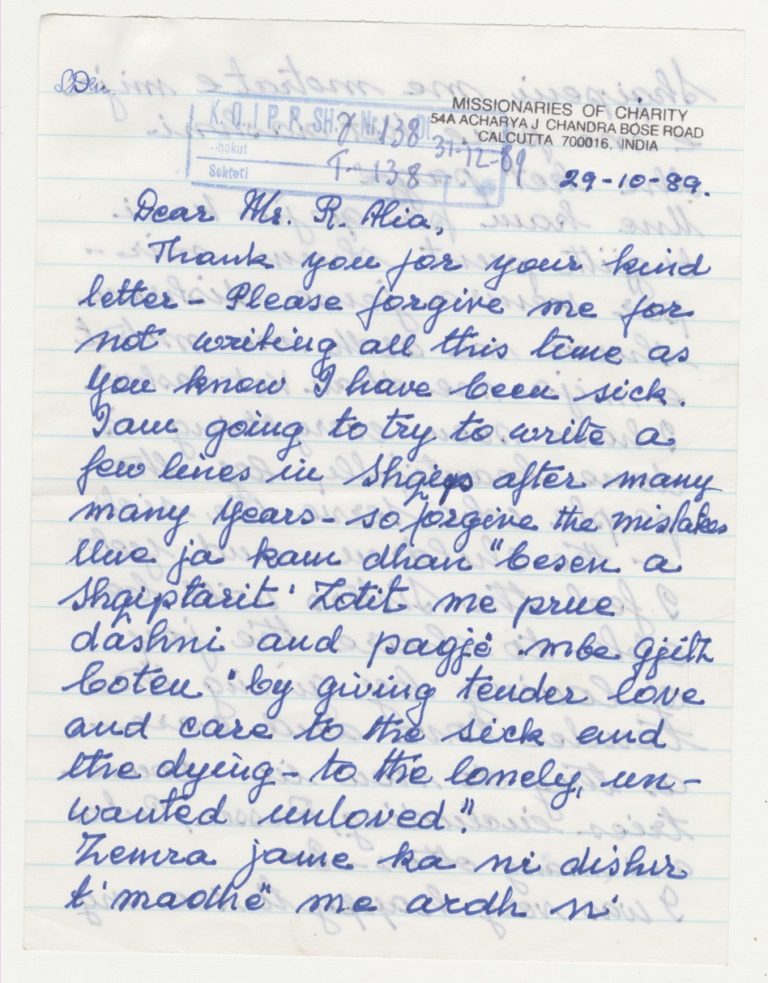 MISSIONARIES OF CHARITY
54A ACHARYA J CHANDRA BOSE ROAD
CALCUTTA 700016. INDIA
K. Q. I P. R. SH. 7 Nr. 138
31-12-89
Sektori T- 138
29-10-89.
Dear Mr. R. Alia,
Thank you for your kind
letter – Please forgive me for
not writing all this time as
you know I have been sick.
I am going to try to write a
few lines in Shqips after many
many years – so forgive the mistakes
Une ja kam dhan "besen a
Shqiptarit" Zotit me prue
dashni and paqjë mbe gjith
boten "by giving tender love
and care to the sick and
the dying – to the lonely, un-
wanted unloved."
Zemra jame ka ni dishir
t'madhë me ardh ni